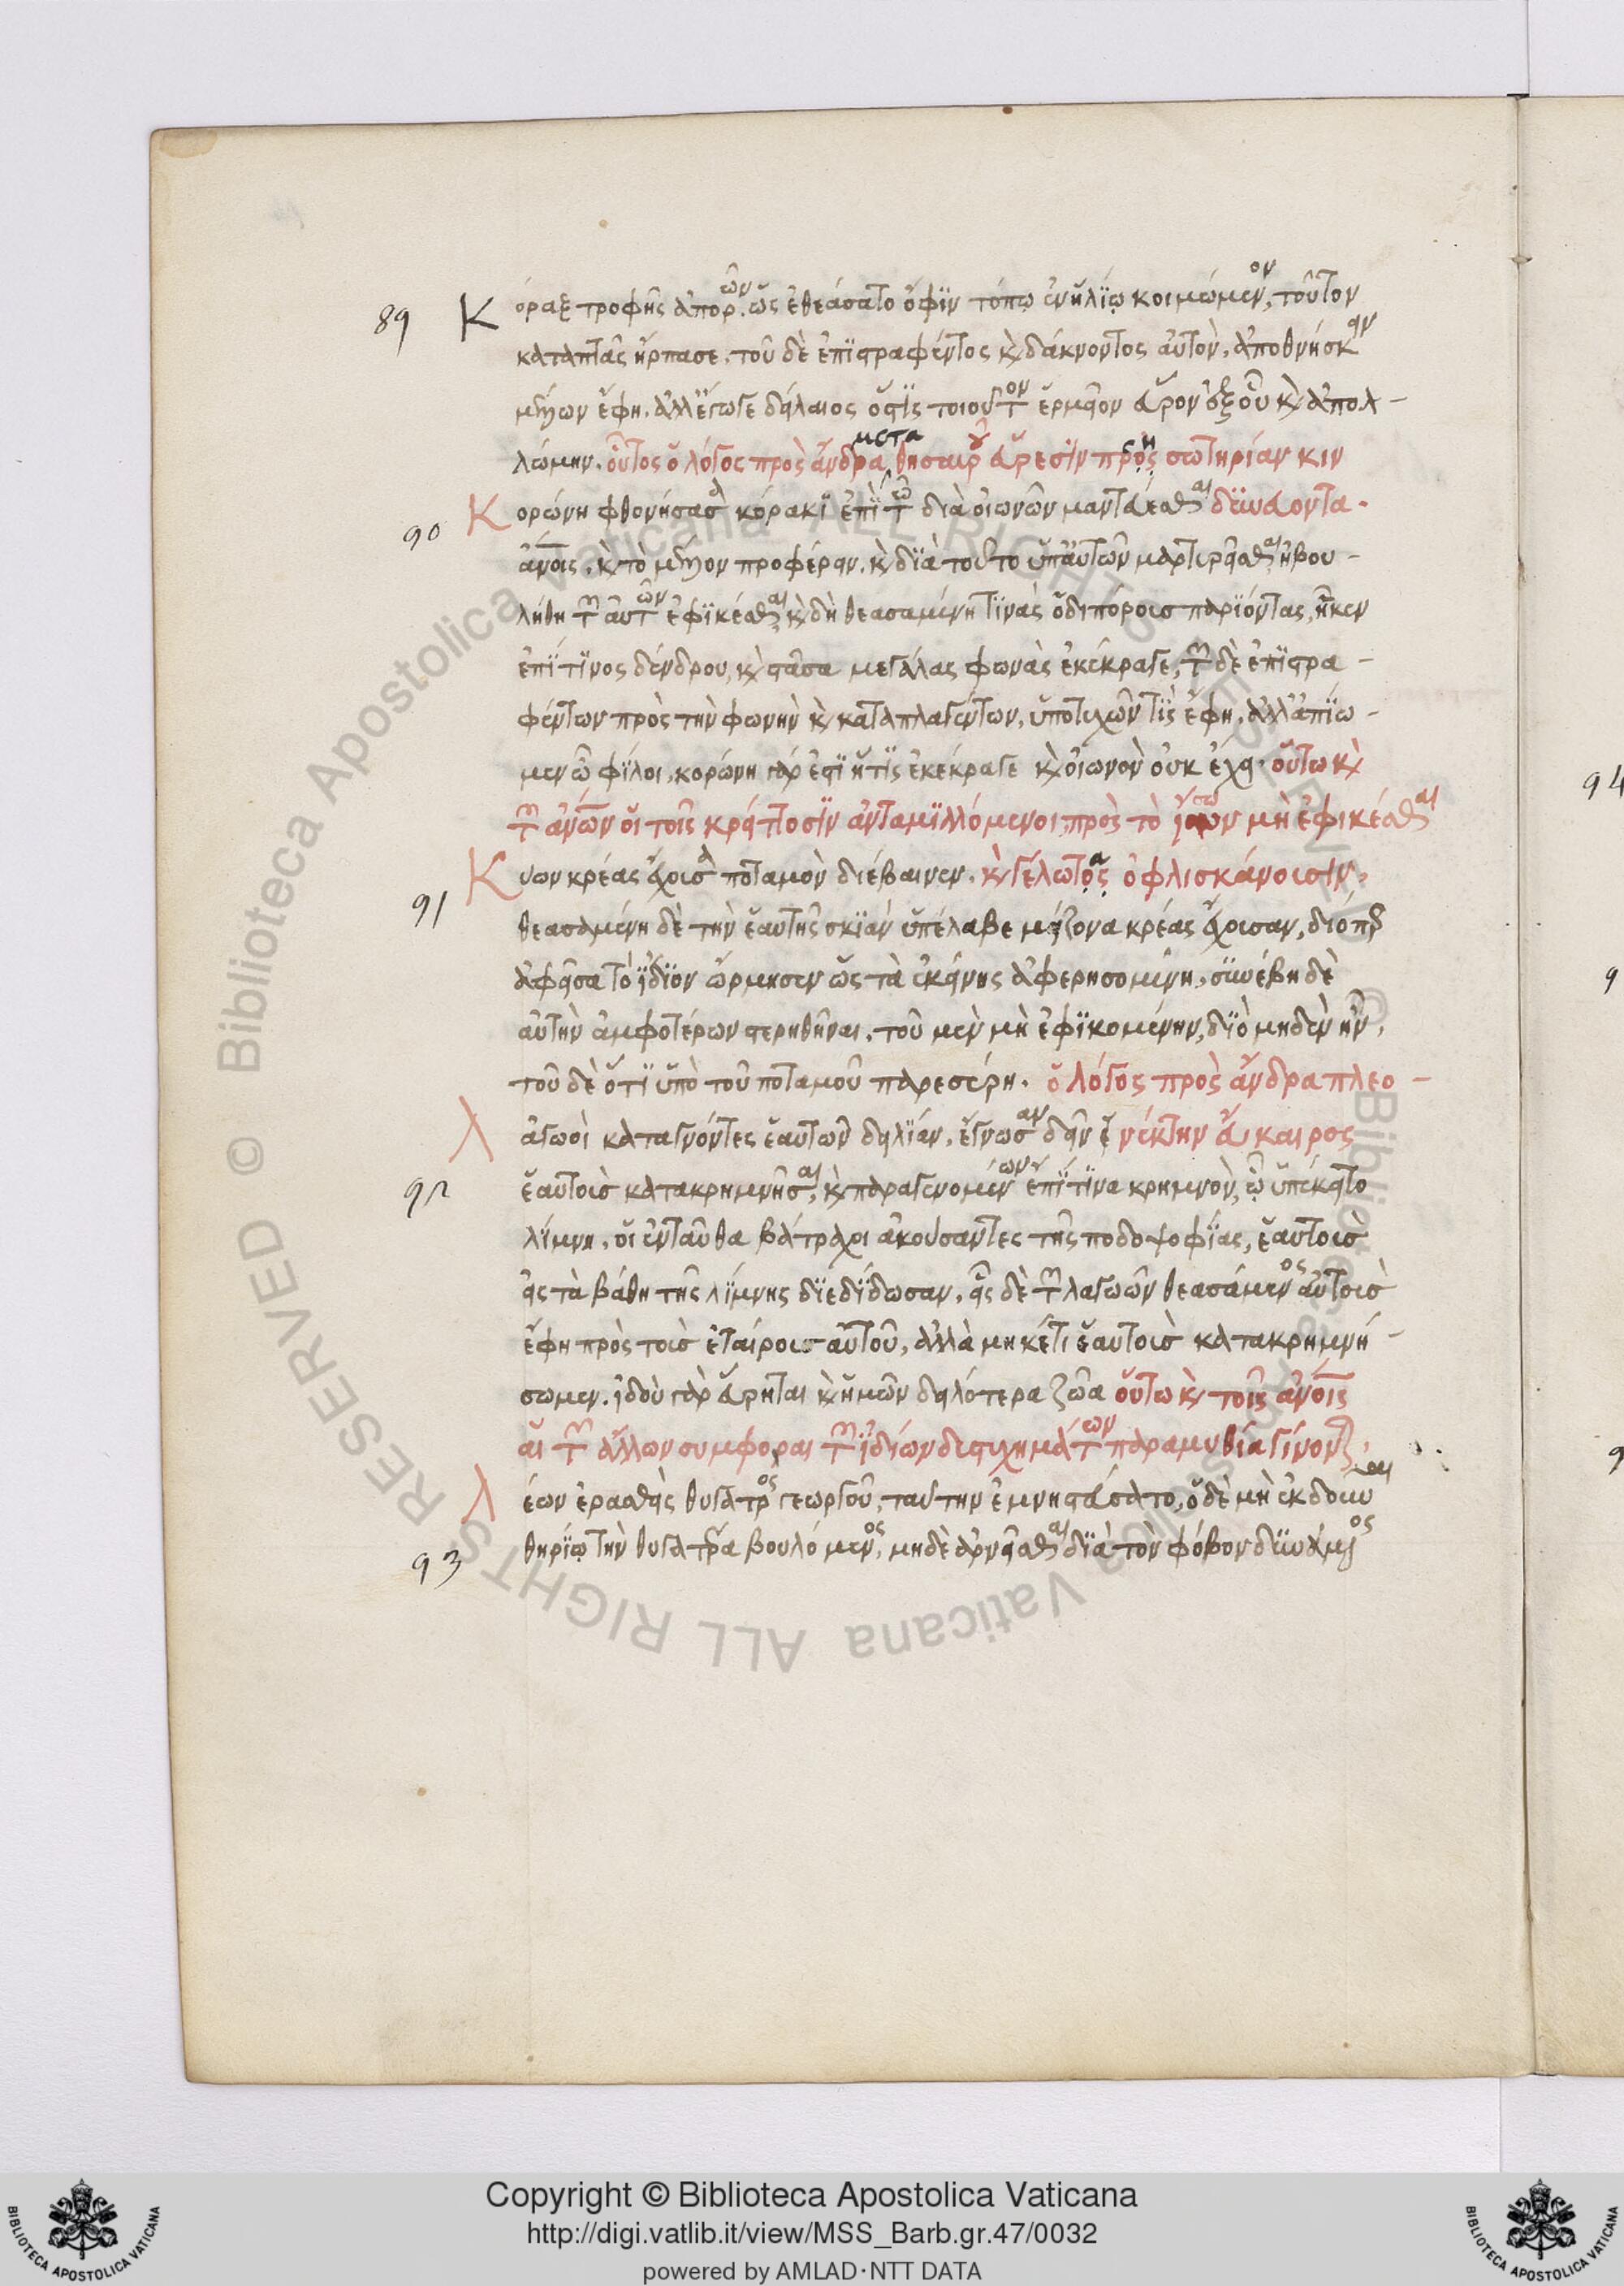 89 Κόραξ τροφῆς ἀπορῶν. ὡς ἐθεάσατο ὄφϊν τόπῳ ἐν ἡλίῳ κοιμώμενον, τοῦτον
καταπτὰς ἥρπασε. τοῦ δὲ ἐπϊστραφέντος καὶ δάκνοντος αὐτὸν, ἀποθνήσκειν
μέλλων ἔφη. ἀλλ' ἔγωγε δείλαιος ὅστϊς τοιοῦτον ἕρμαιον εὗρον ἐξ οὗ καὶ ἀπολ-
λώμην. οὗτος ὁ λόγος πρὸς ἄνδρα μετα θησαυροῦ εὕρεσϊν πρὸς σωτηρίαν κιν
90 Κορώνη φθονήσασα κόρακϊ ἐπὶ τῶ διὰ οἰωνῶν μαντεύεσθαι δυνεύοντα.
ἀνοις, καὶ τὸ μέλλον προφέρειν. καὶ δϊὰ τοῦτο ὑπ' αὐτῶν μαρτυρεῖσθαι ἠβου-
λήθη τῶν αὐτῶν ἐφϊκέσθαι, καὶ δὴ θεασαμένη τϊνὰς ὁδιπόρους παρϊόντας, ἧκεν
ἐπϊ τϊνος δένδρου, καὶ στᾶσα μεγάλας φωνὰς ἐκέκραγε, τῶν δὲ ἐπϊστρα-
φέντων πρὸς τὴν φωνὴν καὶ καταπλαγέντων, ὑποτυχῶν τὶς ἔφη. ἀλλ' ἀπϊω-
μεν ὦ φϊλοι, κορώνη γάρ ἐστϊ ἥτϊς ἐκέκραγε καὶ οἰωνὸν οὐκ ἔχει. οὕτω καὶ
τῶν ἀνων οἱ τοῖς κρείττοσϊν ἀνταμϊλλόμενοι, πρὸς τὸ ἴσων μὴ ἐφικέσθαι
91 Κύων κρέας ἔχουσα ποταμὸν διέβαινεν. καὶ γέλωτας ὀφλισκάνουσϊν,
θεασαμένη δὲ τὴν ἑαυτῆς σκϊὰν ὑπέλαβε μείζονα κρέας ἔχουσαν, διόπερ
ἀφεῖσα τὸ ἴδϊον ὥρμησεν ὡς τὰ ἐκείνης ἀφερησομένη, συνέβη δὲ
αὐτὴν ἀμφοτέρων στερηθῆναι. τοῦ μὲν μὴ ἐφϊκομένην, δϊὸ μηδὲν ἦν,
τοῦ δὲ ὅτϊ ὑπὸ τοῦ ποταμοῦ παρεσύρη. ὁ λόγος πρὸς ἄνδρα πλεο-
92 λαγωοὶ καταγνόντες ἑαυτῶν δειλϊάν, ἔγνωσαν δεῖν νέκτην εὔκαιρος
ἑαυτοὺς κατακρημνῆσαι, καὶ παραγενομένων ἐπϊ τϊνα κρημνὸν, ᾧ ὑπέκειτο
λίμνη. οἱ ἐνταῦθα βάτραχοι ἀκούσαντες τῆς ποδοψοφϊας, ἑαυτοὺς
εἰς τὰ βάθη τῆς λίμνης δϊεδϊδωσαν, εἷς δὲ τῶν λαγωῶν θεασάμενος αὐτοὺς
ἔφη πρὸς τοὺς ἑταίρους αὐτοῦ, ἀλλὰ μηκέτι ἑαυτοὺς κατακρημνή-
σωμεν. ἰδοὺ γὰρ εὕρηται καὶ ἡμῶν δειλότερα ζῶα οὕτω καὶ τοῖς ἀνοις
αἱ τῶν ἄλλων συμφοραι τῶν ἰδίων δυστυχημάτων παραμυθία γίνονται,
93 λέων ἐρασθεὶς θυγατρος γεωργοῦ, ταύτην ἐμνηστεύσατο, ὁ δὲ μὴ ἐκδοῦναι
θηρϊῳ τὴν θυγατέρα βουλόμενος, μηδὲ ἀρνεῖσθαι δϊὰ τὸν φόβον δυνάμενος